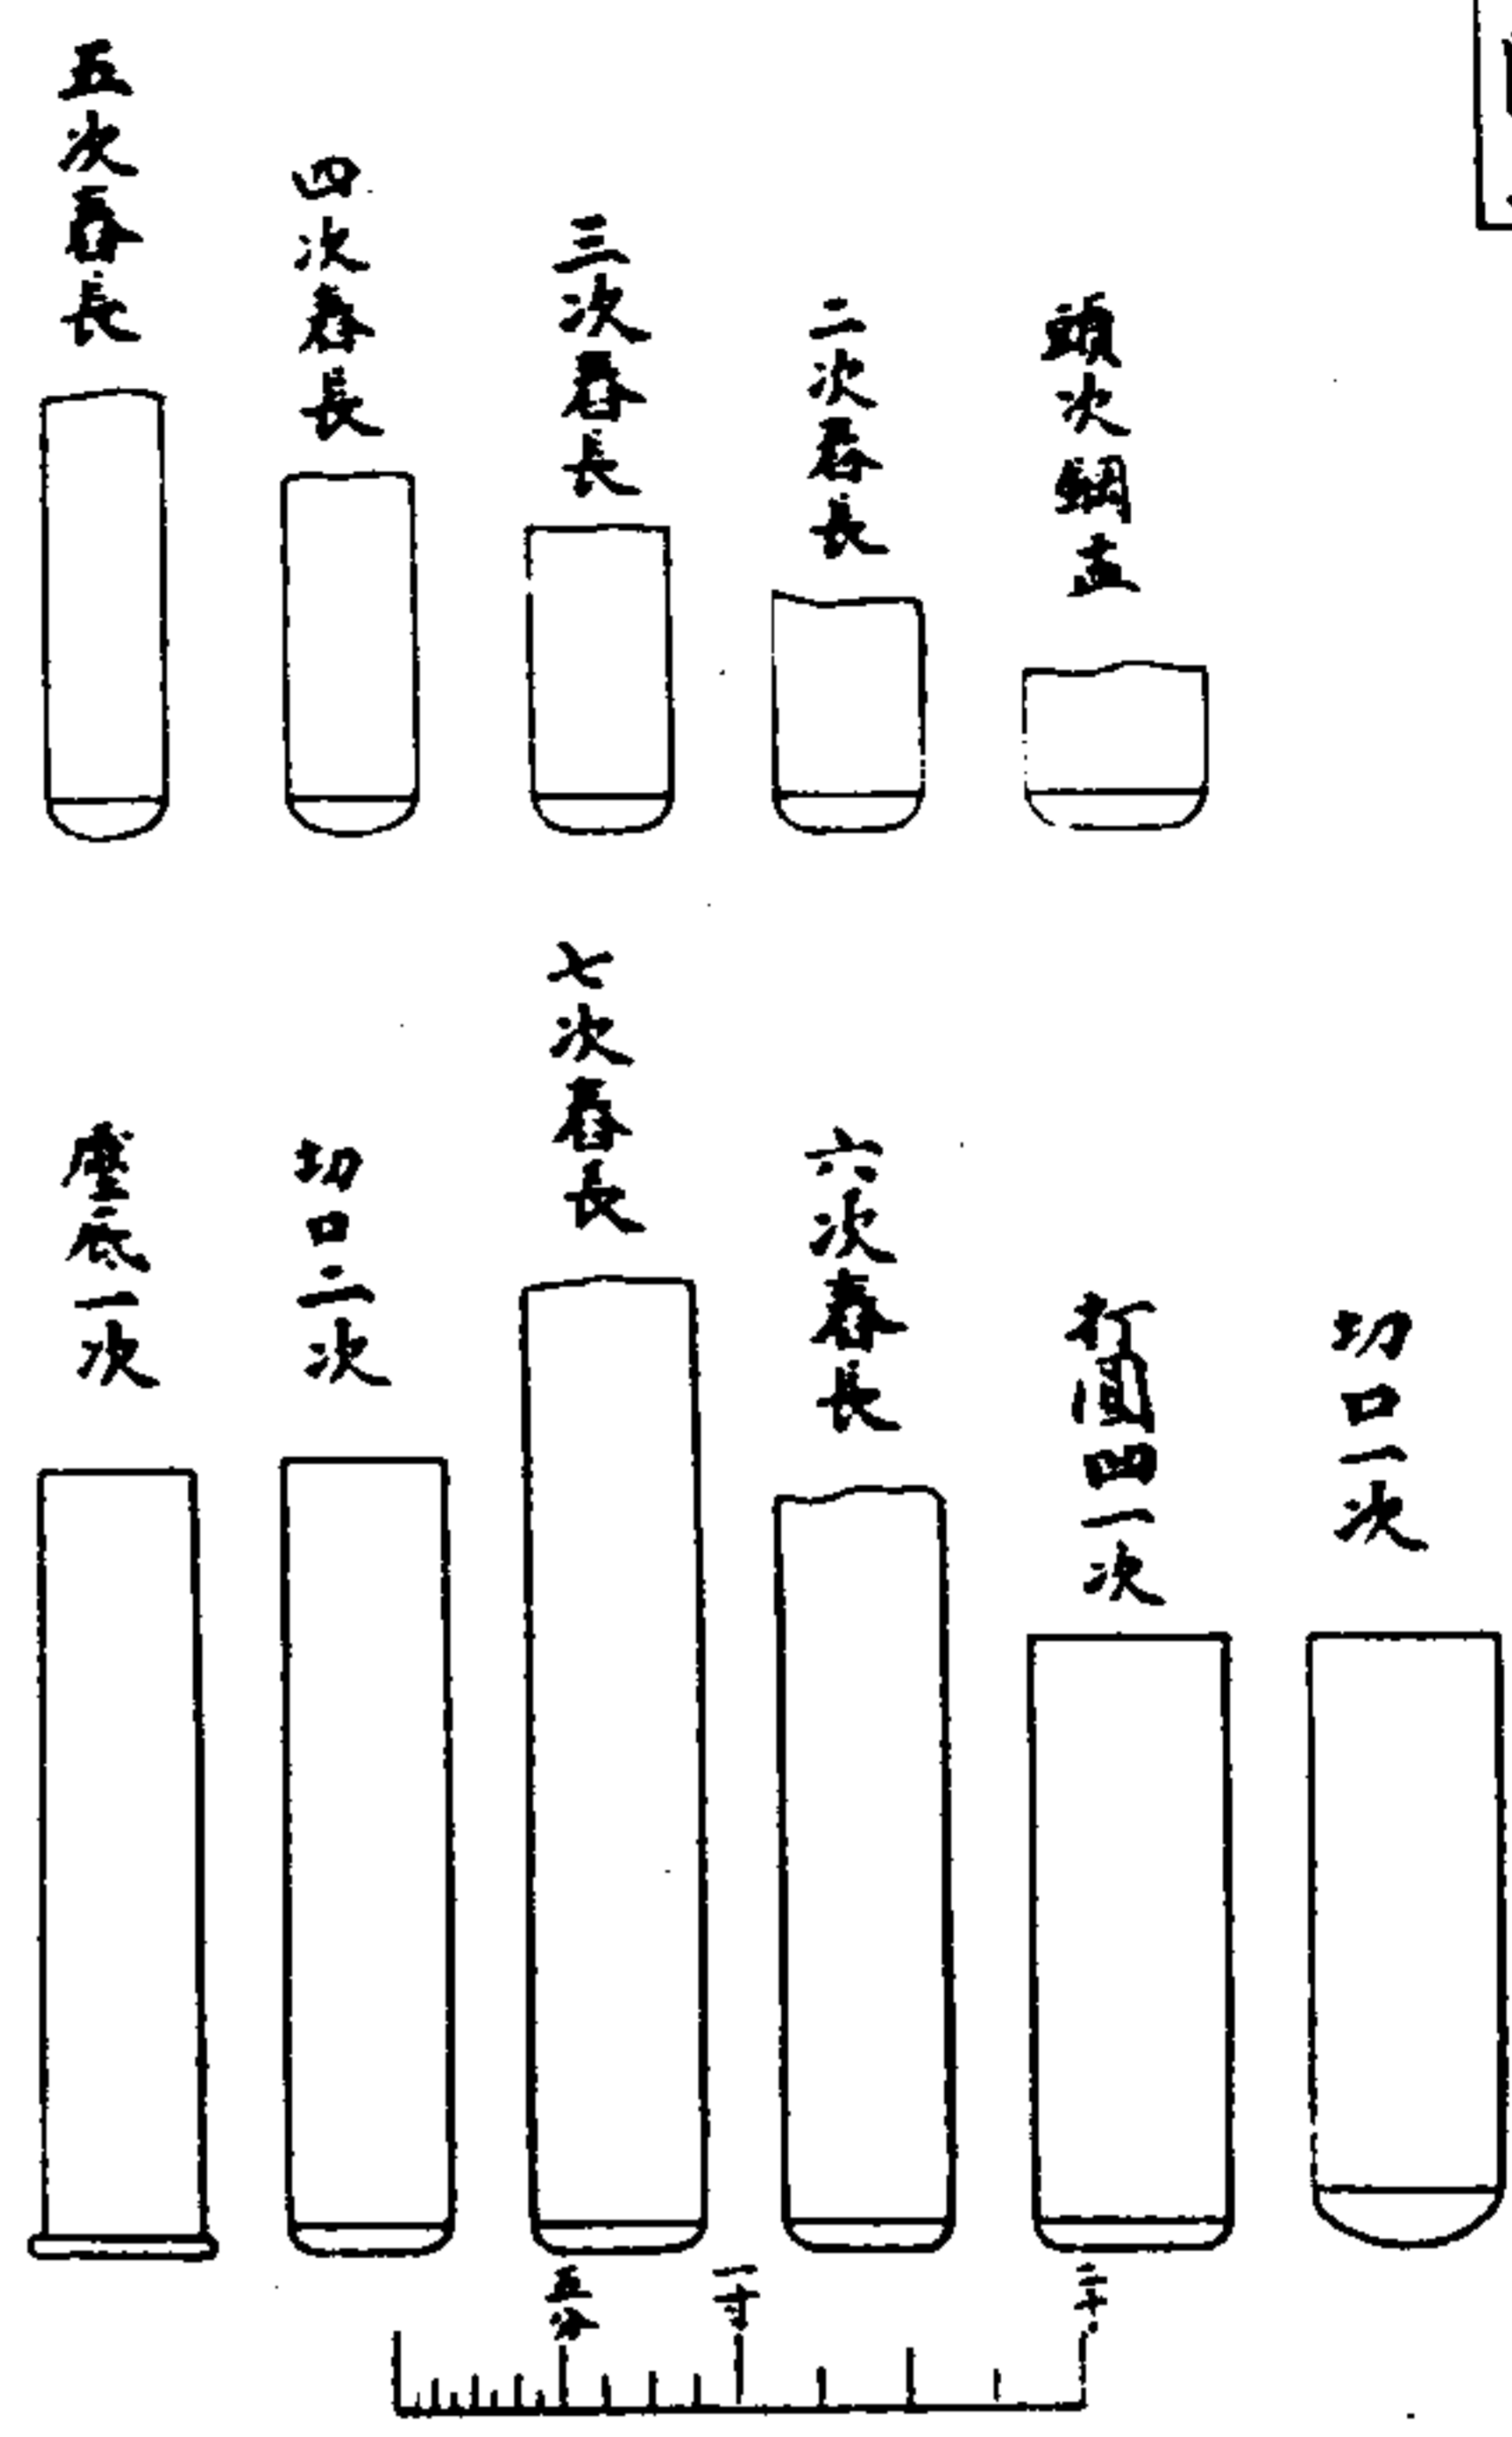 頭次銅盂
二次舂長
三次舂長
四次舂長
五次舂長
切口一次
一次
六次舂長
七次舂長
切口二次
壓底一次
五分
一寸
二寸